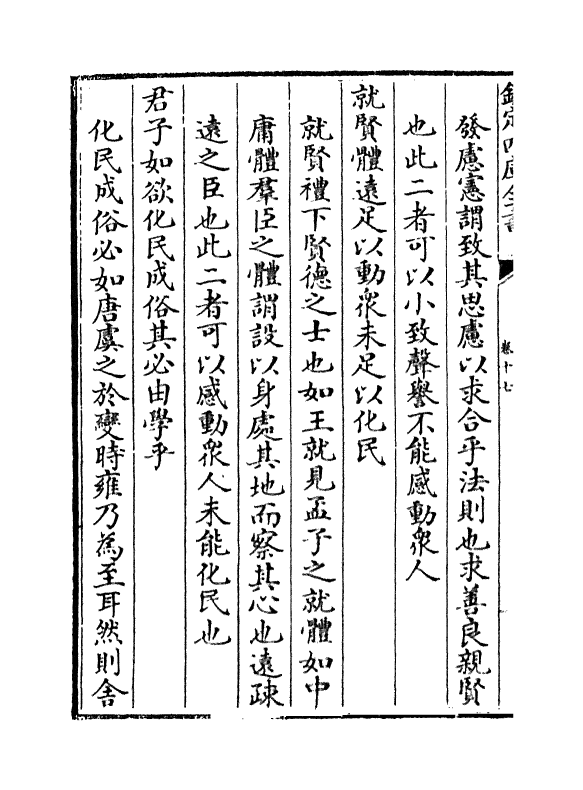 欽定四庫全書
卷十七
發慮憲謂致其思慮以求合乎法則也求善良親賢
也此二者可以小致聲譽不能感動衆人
就賢體遠足以動衆未足以化民
就賢禮下賢德之士也如王就見孟子之就體如中
庸體羣臣之體謂設以身處其地而察其心也遠疎
遠之臣也此二者可以感動衆人未能化民也
君子如欲化民成俗其必由學乎
化民成俗必如唐虞之於變時雍乃為至耳然則舍